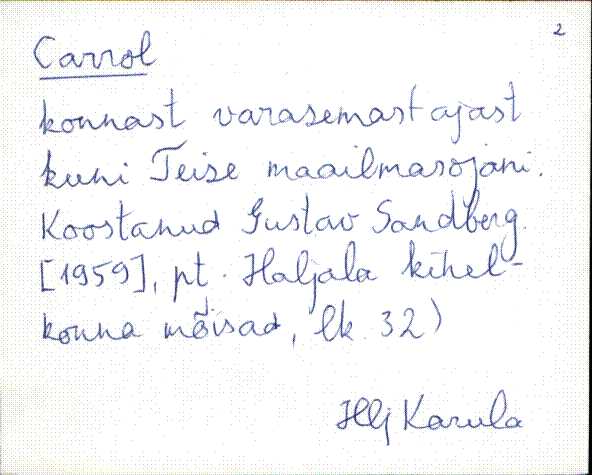 2
Carrol
konnast varasemast ajast
kuni Teise maailmasõjani.
Koostanud Gustav Sandberg.
[1959], pt. Haljala kihel-
konna mõisad, lk. 32)
Karula